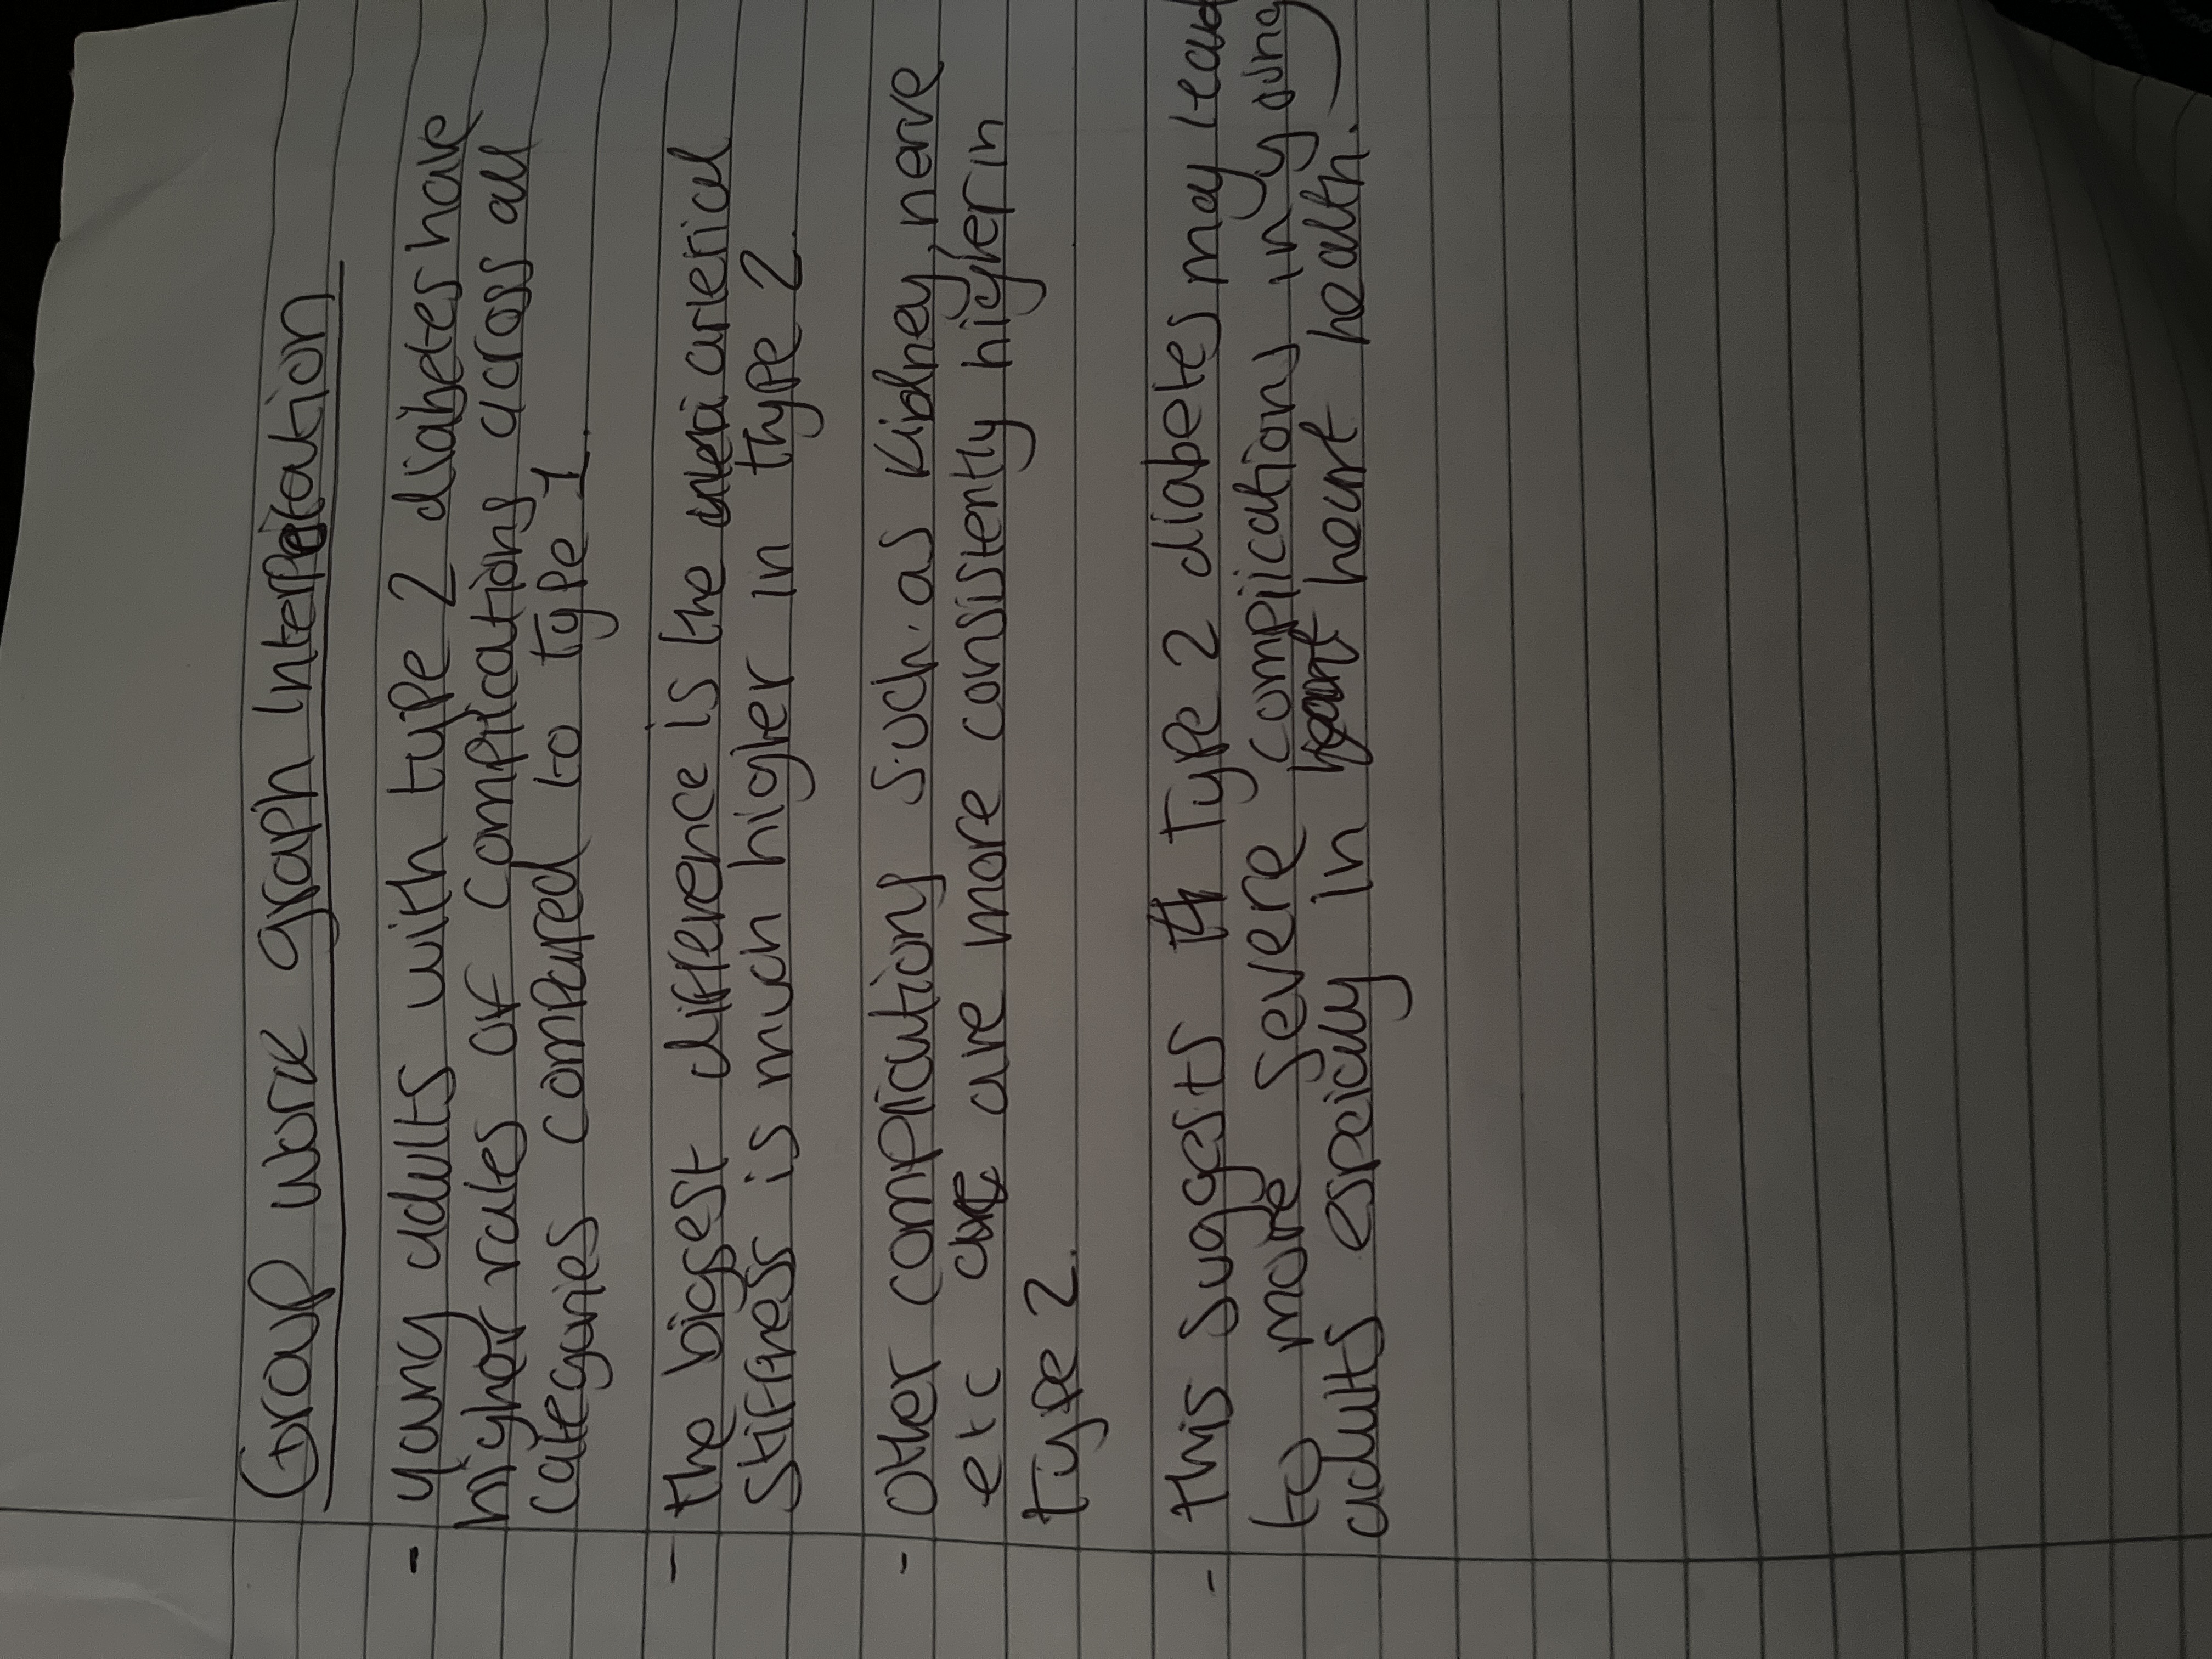 Group work graph Interpetation
- young adults with type 2 diabetes have
higher rates of complications across all
categories compared to type 1.
- the biggest difference is the arterial
stiffness is much higher in type 2.
- Other complications such as kidney, nerve
etc are more consistently higher in
type 2.
- this suggests Type 2 diabetes may lead
to more severe complications in young
adults espically in heart health.